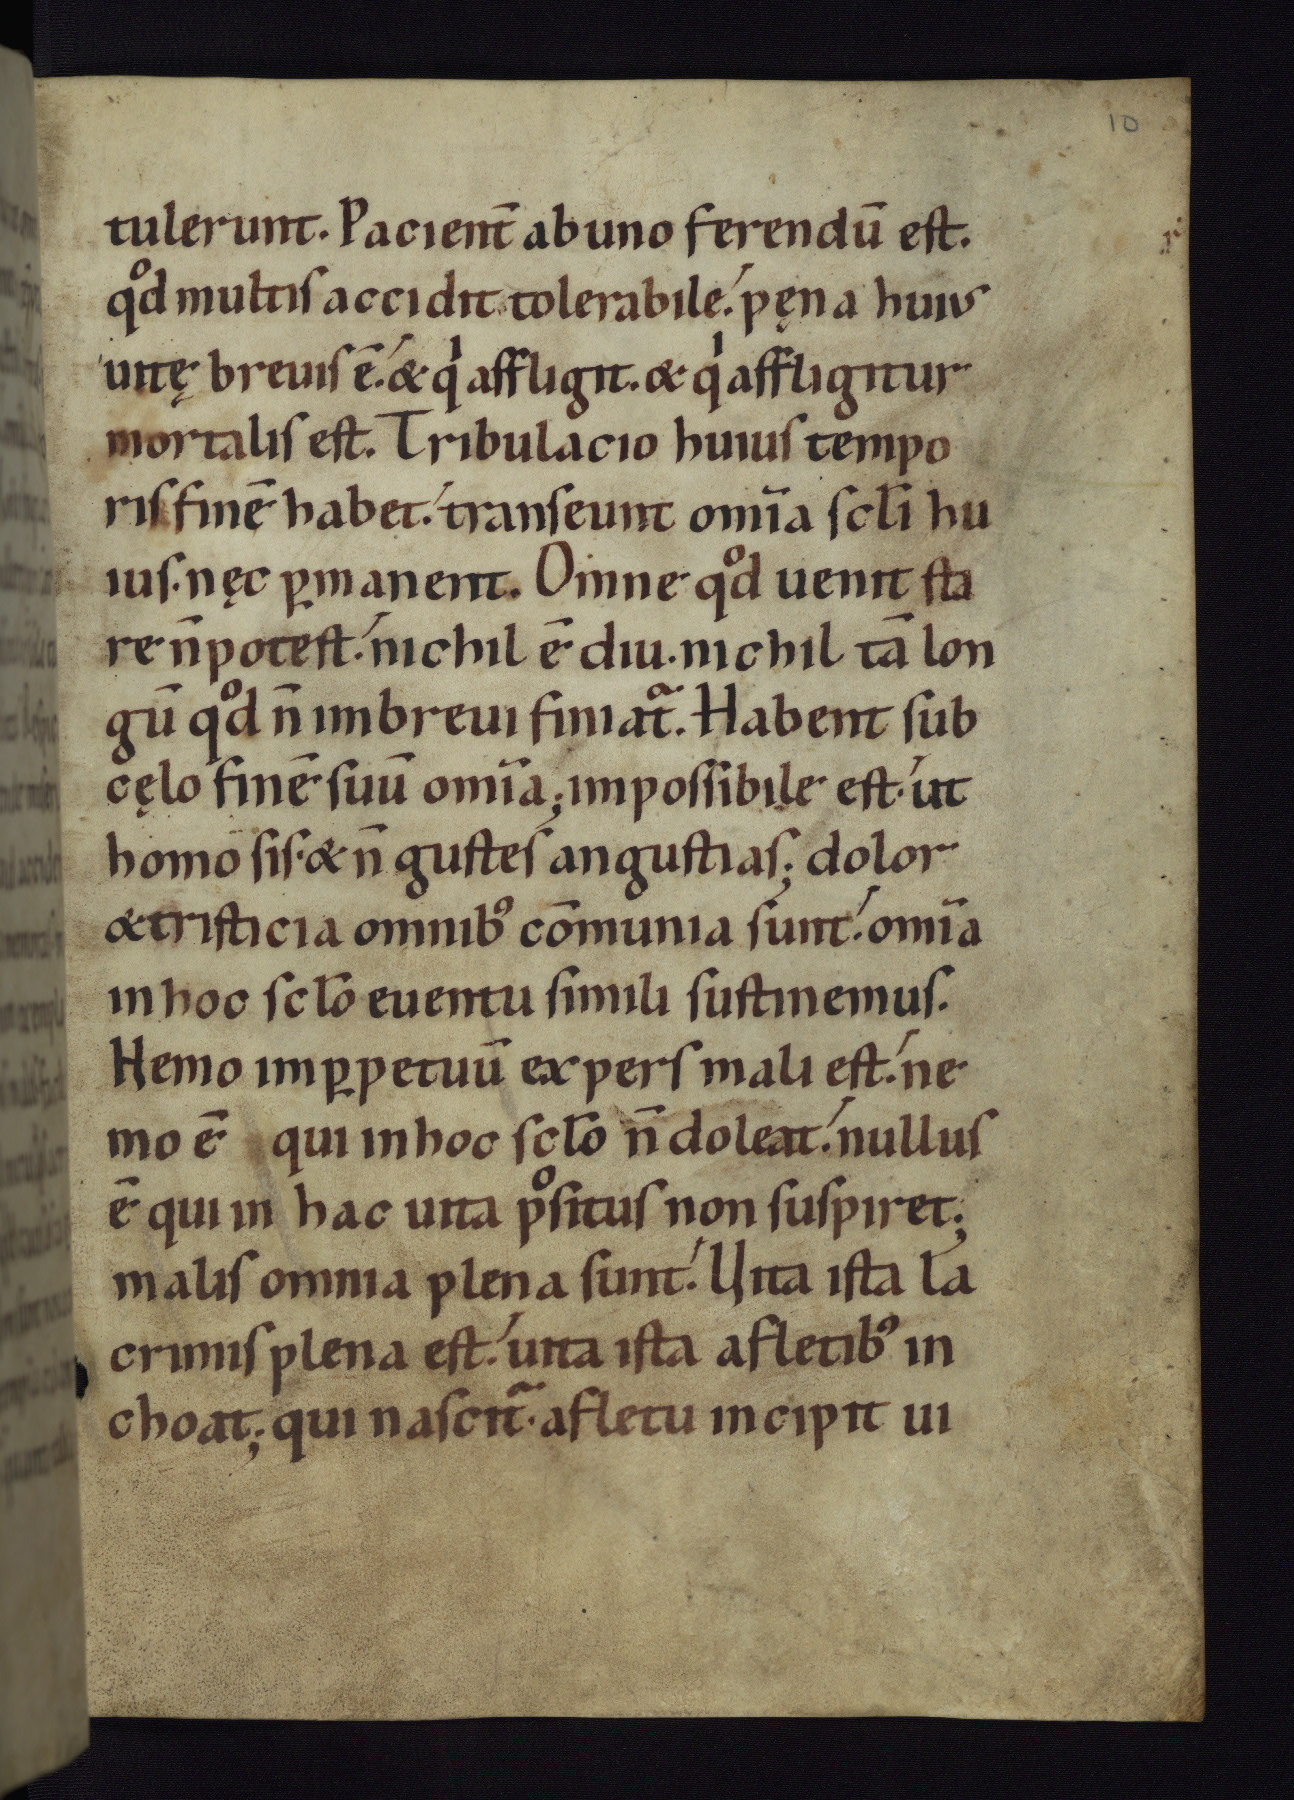 10
tulerunt. Pacient̄ ab uno ferendū est.
qͦd multis accidit tolerabile. pęna huius
uitę breuis ē. & qⁱ affligit. & qⁱ affligitur
mortalis est. Tribulacio huius tempo
ris finē habet. transeunt om̄ia scl̄i hu
ius. nęc ꝑmanent. Omne qͦd uenit sta
re n̄ potest. nichil ē diu. nichil tā lon
gū qͦd n̄ imbreui finiatᷓ. Habent sub
cęlo finē suū om̄ia; impossibile est. ut
homo sis. & n̄ gustes angustias; dolor
& tristicia omnibꝰ cōmunia sunt. om̄ia
in hoc scl̄o euentu simili sustinemus.
Nemo imꝑpetuū expers mali est. ne
mo ē qui in hoc scl̄o n̄ doleat. nullus
ē qui in hac uita pͦsitus non suspiret;
malis omnia plena sunt. Uita ista la
crimis plena est. uita ista a fletibꝰ in
choat; qui nascitᷓ. a fletu incipit ui